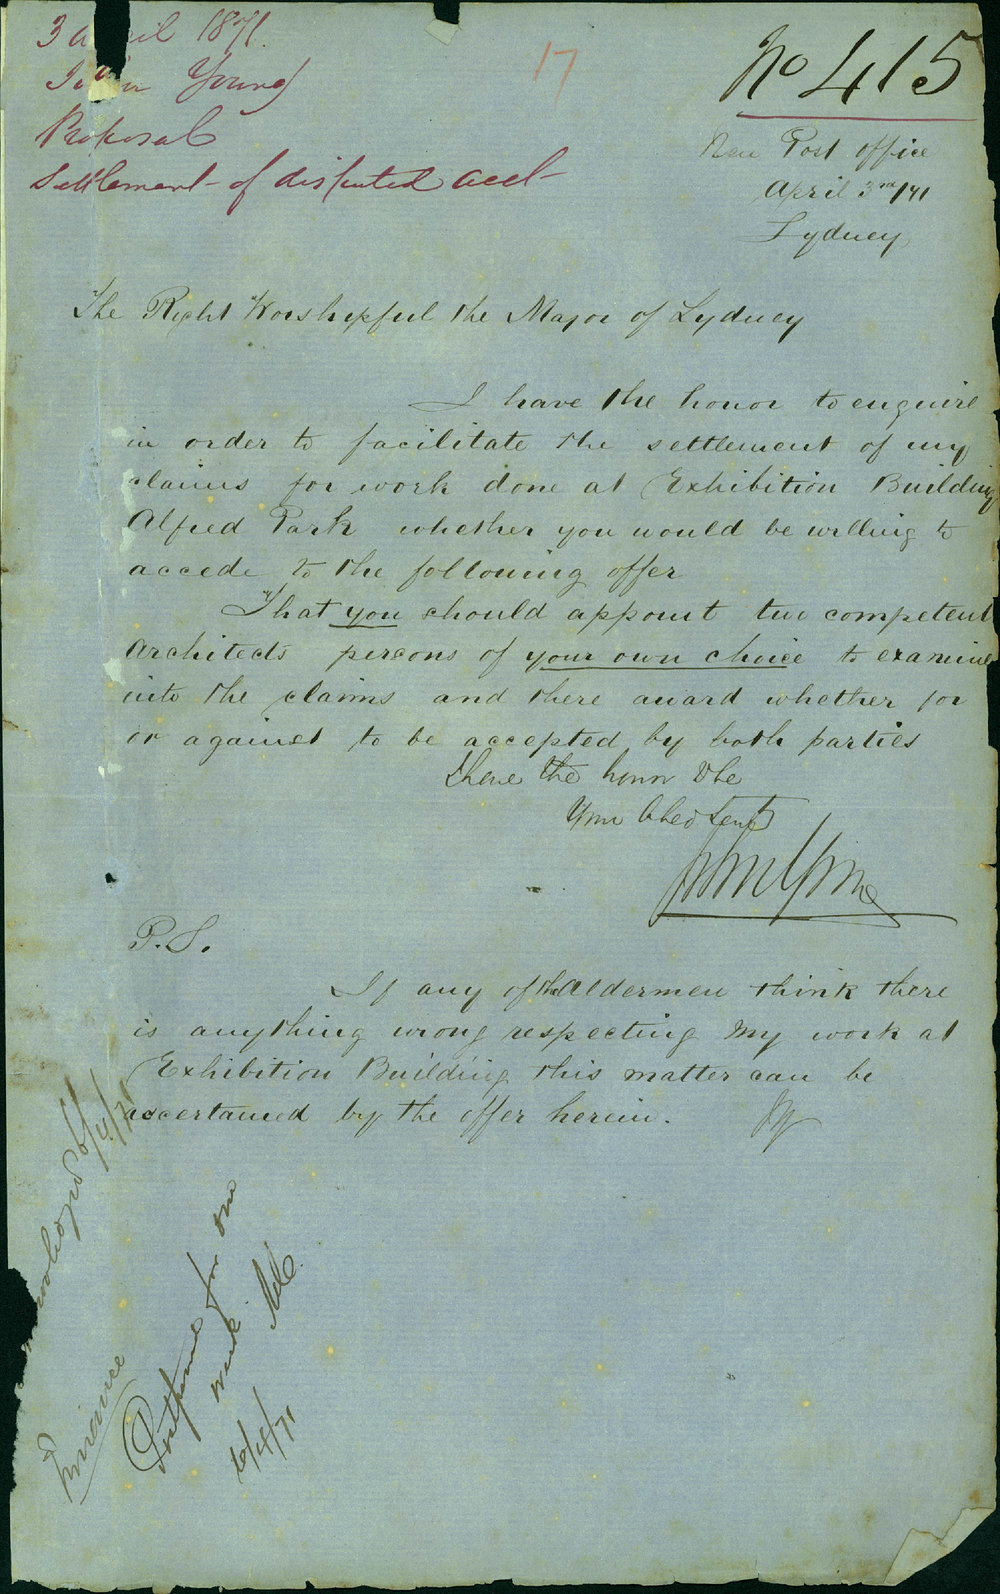 3 April 1871
John Young
Proposal
Settlement of disputed acct
17
No 415
New Post office
April 3rd/71
Sydney
The Right Worshipful the Mayor of Sydney
I have the honor to enquire
in order to facilitate the settlement of my
claims for work done at Exhibition Building
Alfred Park whether you would be willing to
accede to the following offer
That you should appoint two competent
Architects persons of your own choice to examine
into the claims and there award whether for
or against to be accepted by both parties
I have the honor to be
Your Obed Servt
John Young
P.S.
If any of the Aldermen think there
is anything wrong respecting my work at
Exhibition Building this matter can be
ascertained by the offer herein. JY
6/4/71
Finance
Postponed for one
week
6/4/71